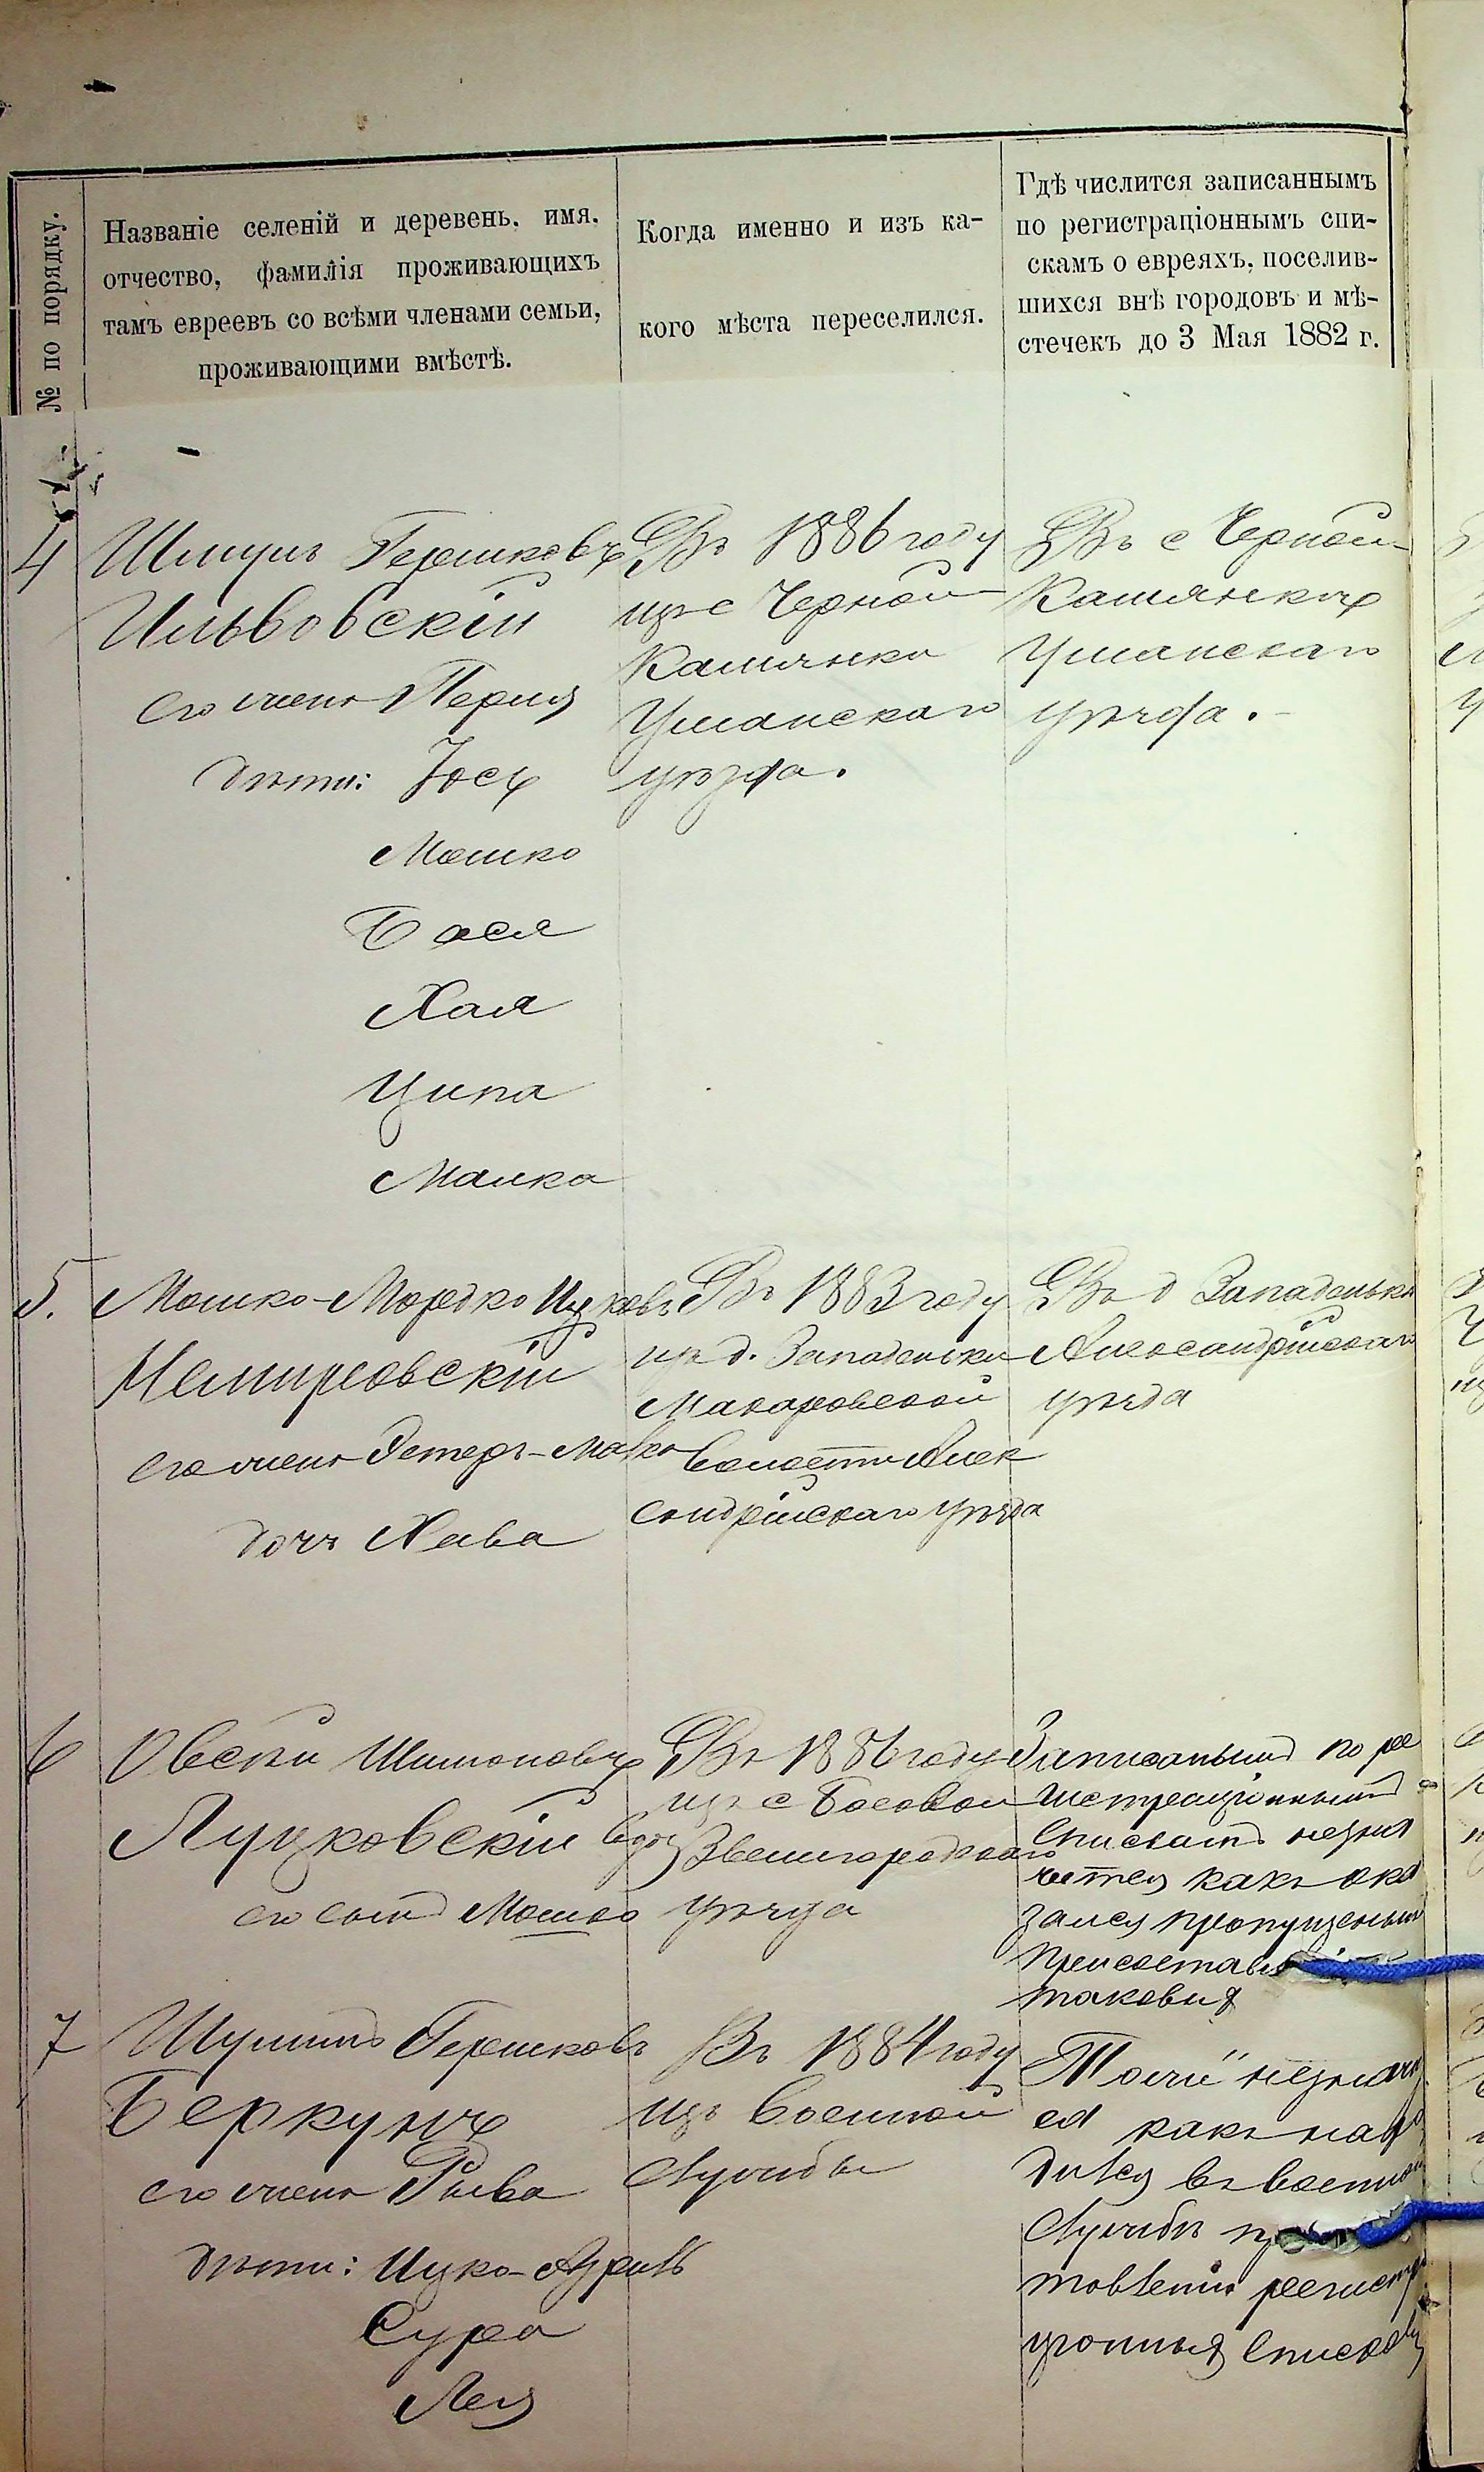 № по порядку.
Названіе селеній и деревень, имя,
отчество, фамилія проживающихъ
тамъ евреевъ со всѣми членами семьи,
проживающими вмѣстѣ.
Когда именно и изъ ка-
кого мѣста переселился.
Гдѣ числится записаннымъ
по регистраціоннымъ спи-
скамъ о евреяхъ, поселив-
шихся внѣ городовъ и мѣ-
стечекъ до 3 Мая 1882 г.
4
Шмуль Гершковъ
Ильвовскій
его жена Перля
дѣти: Іосъ
Мошко
Бася
Хая
Ципа
Малка
Въ 1886 году
изъ с Черной
Камянки
Уманскаго
уѣзда.
Въ с Черной
Камянкѣ
Уманскаго
уѣзда.
5.
Мошко-Мордко Ицковъ
Немировскій
его жена Эстеръ-
дочь Хава
Въ 1883 году
изъ д. Западеньки
Макаровской
волости Алек
сандрійскаго уѣзда
Въ д Западеньки
Александрійскаго
уѣзда
6
Овсѣй Шимоновъ
Луцковскій вдов
его сынъ Мошко
Въ 1886 году
изъ с Босовой
Звенигородскаго
уѣзда
Записаннымъ по ре
гистраціоннымъ
спискамъ незна
чится какъ ока
зался пропущеннымъ
при составле
таковыхъ
7
Шулимъ Гершковъ
Беркунъ
его жена Рыва
дѣти: Ицко-Азриль
Сура
Лея
Въ 1884 году
изъ военной
службы
Тоже незначи
ся какъ нахо
дился въ военной
службѣ
товленіи регистра
ціонныхъ списковъ